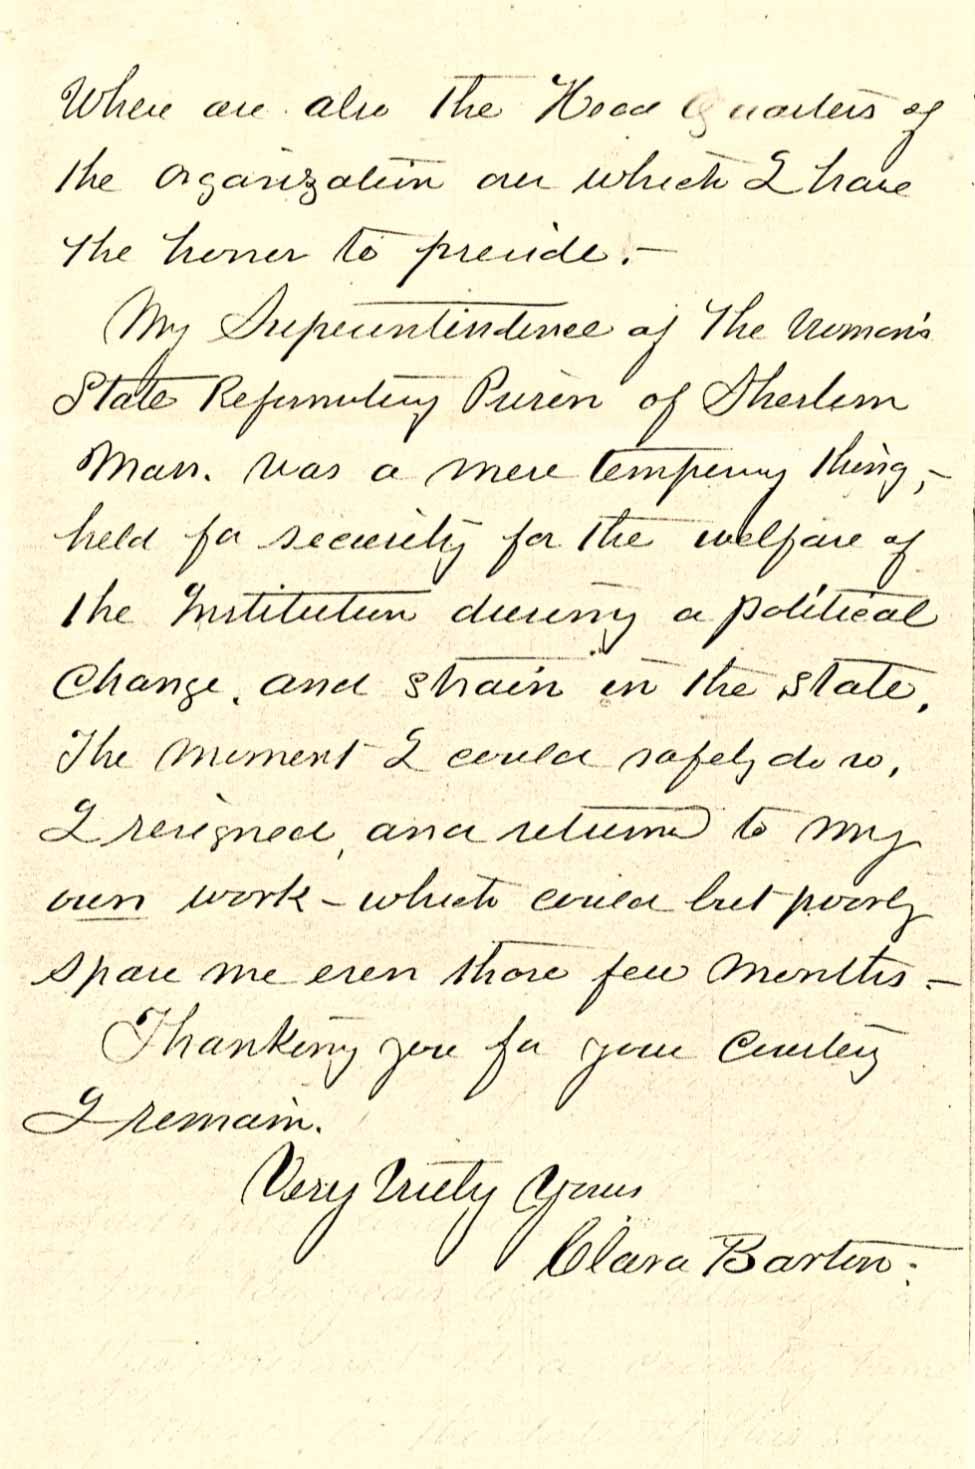 Where are also the Head Quarters of
the organization over which I have
the honor to preside. —
My Superintendence of the Women's
State Reformatory Prison of Sherborn
Mass. was a mere temporary thing, —
held for security for the welfare of
the Institution during a political
Change, and strain in the state.
The moment I could safely do so,
I resigned, and returned to my
own work – which could but poorly
spare me even those few months –
Thanking you for your Courtesy
I remain.
Very truly Yours
Clara Barton.